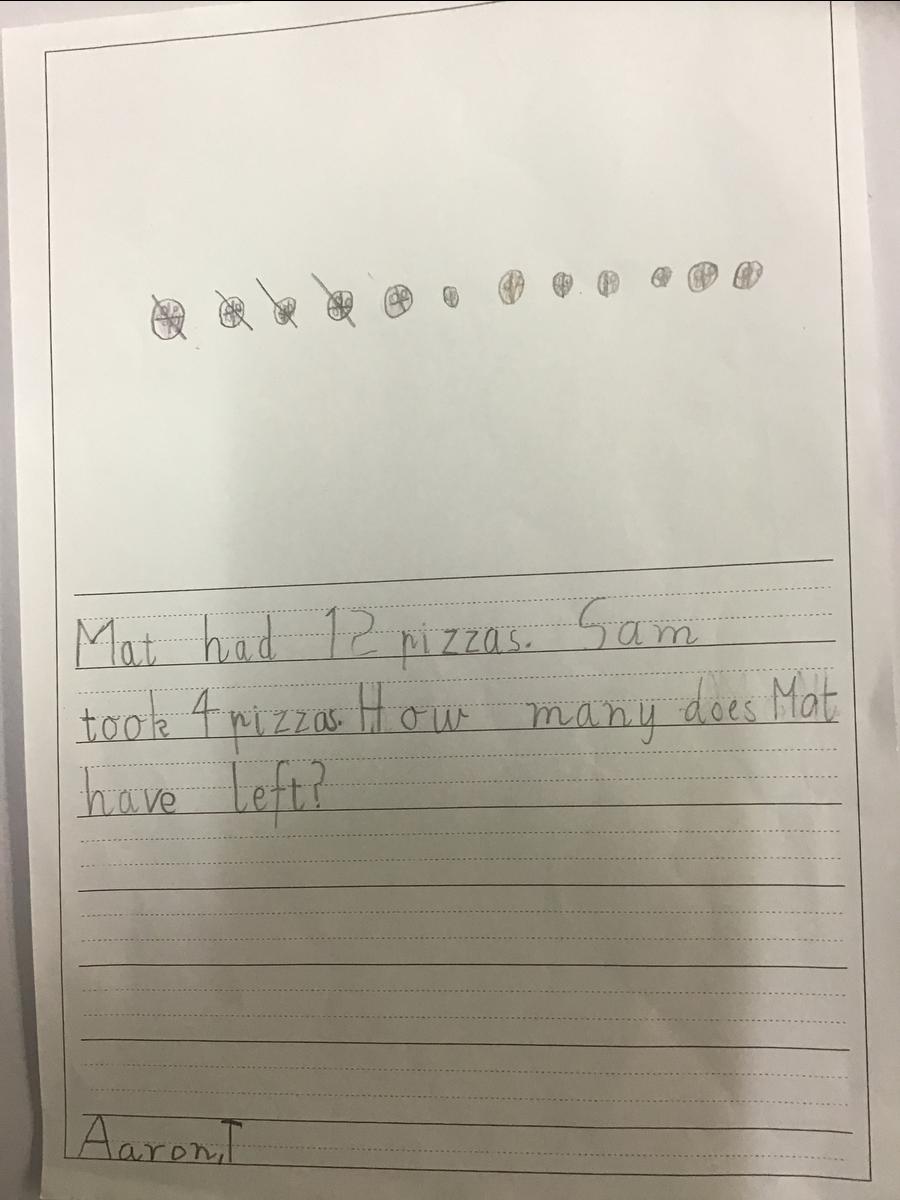 Mat had 12 pizzas. Sam
took 4 pizzas. How many does Mat
have left?
Aaron,T